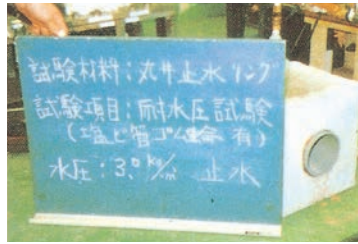 試験材料：丸井止水リング
試験項目：耐水圧試験
（塩ビ管ゴム輪 有）
水圧：3.0 kg/cm² 止水